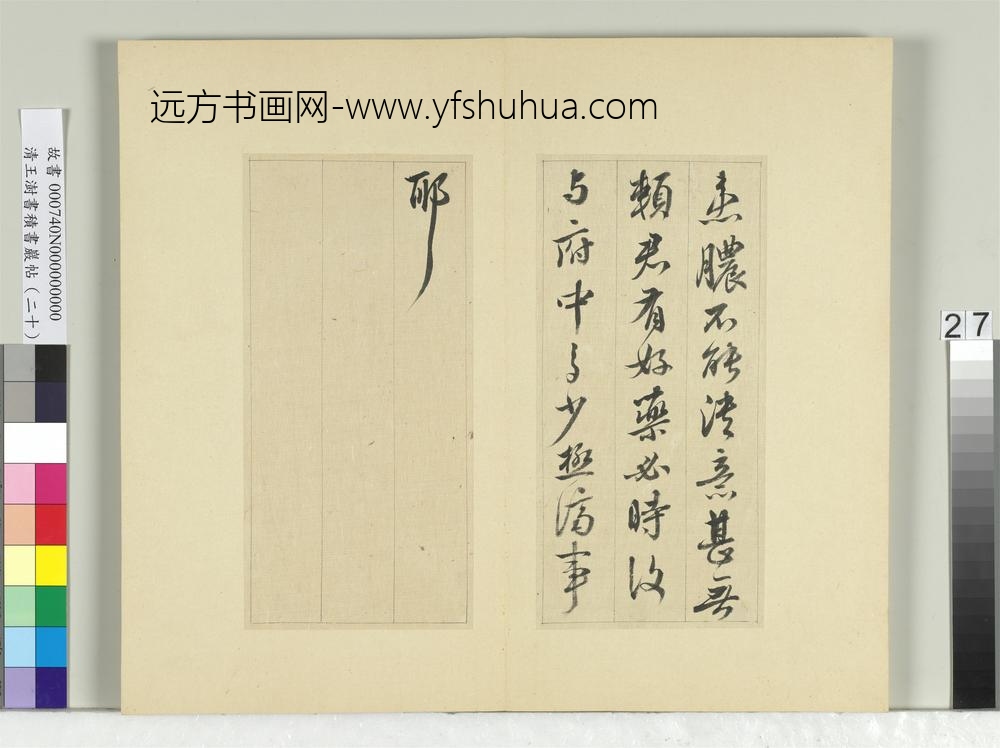 远方书画网-www.yfshuhua.com
故書 000740N000000000
清王澍書積書巖帖(二十)
27
患膿不能意甚無
賴君有好藥必時
与府中少極濟事
耶